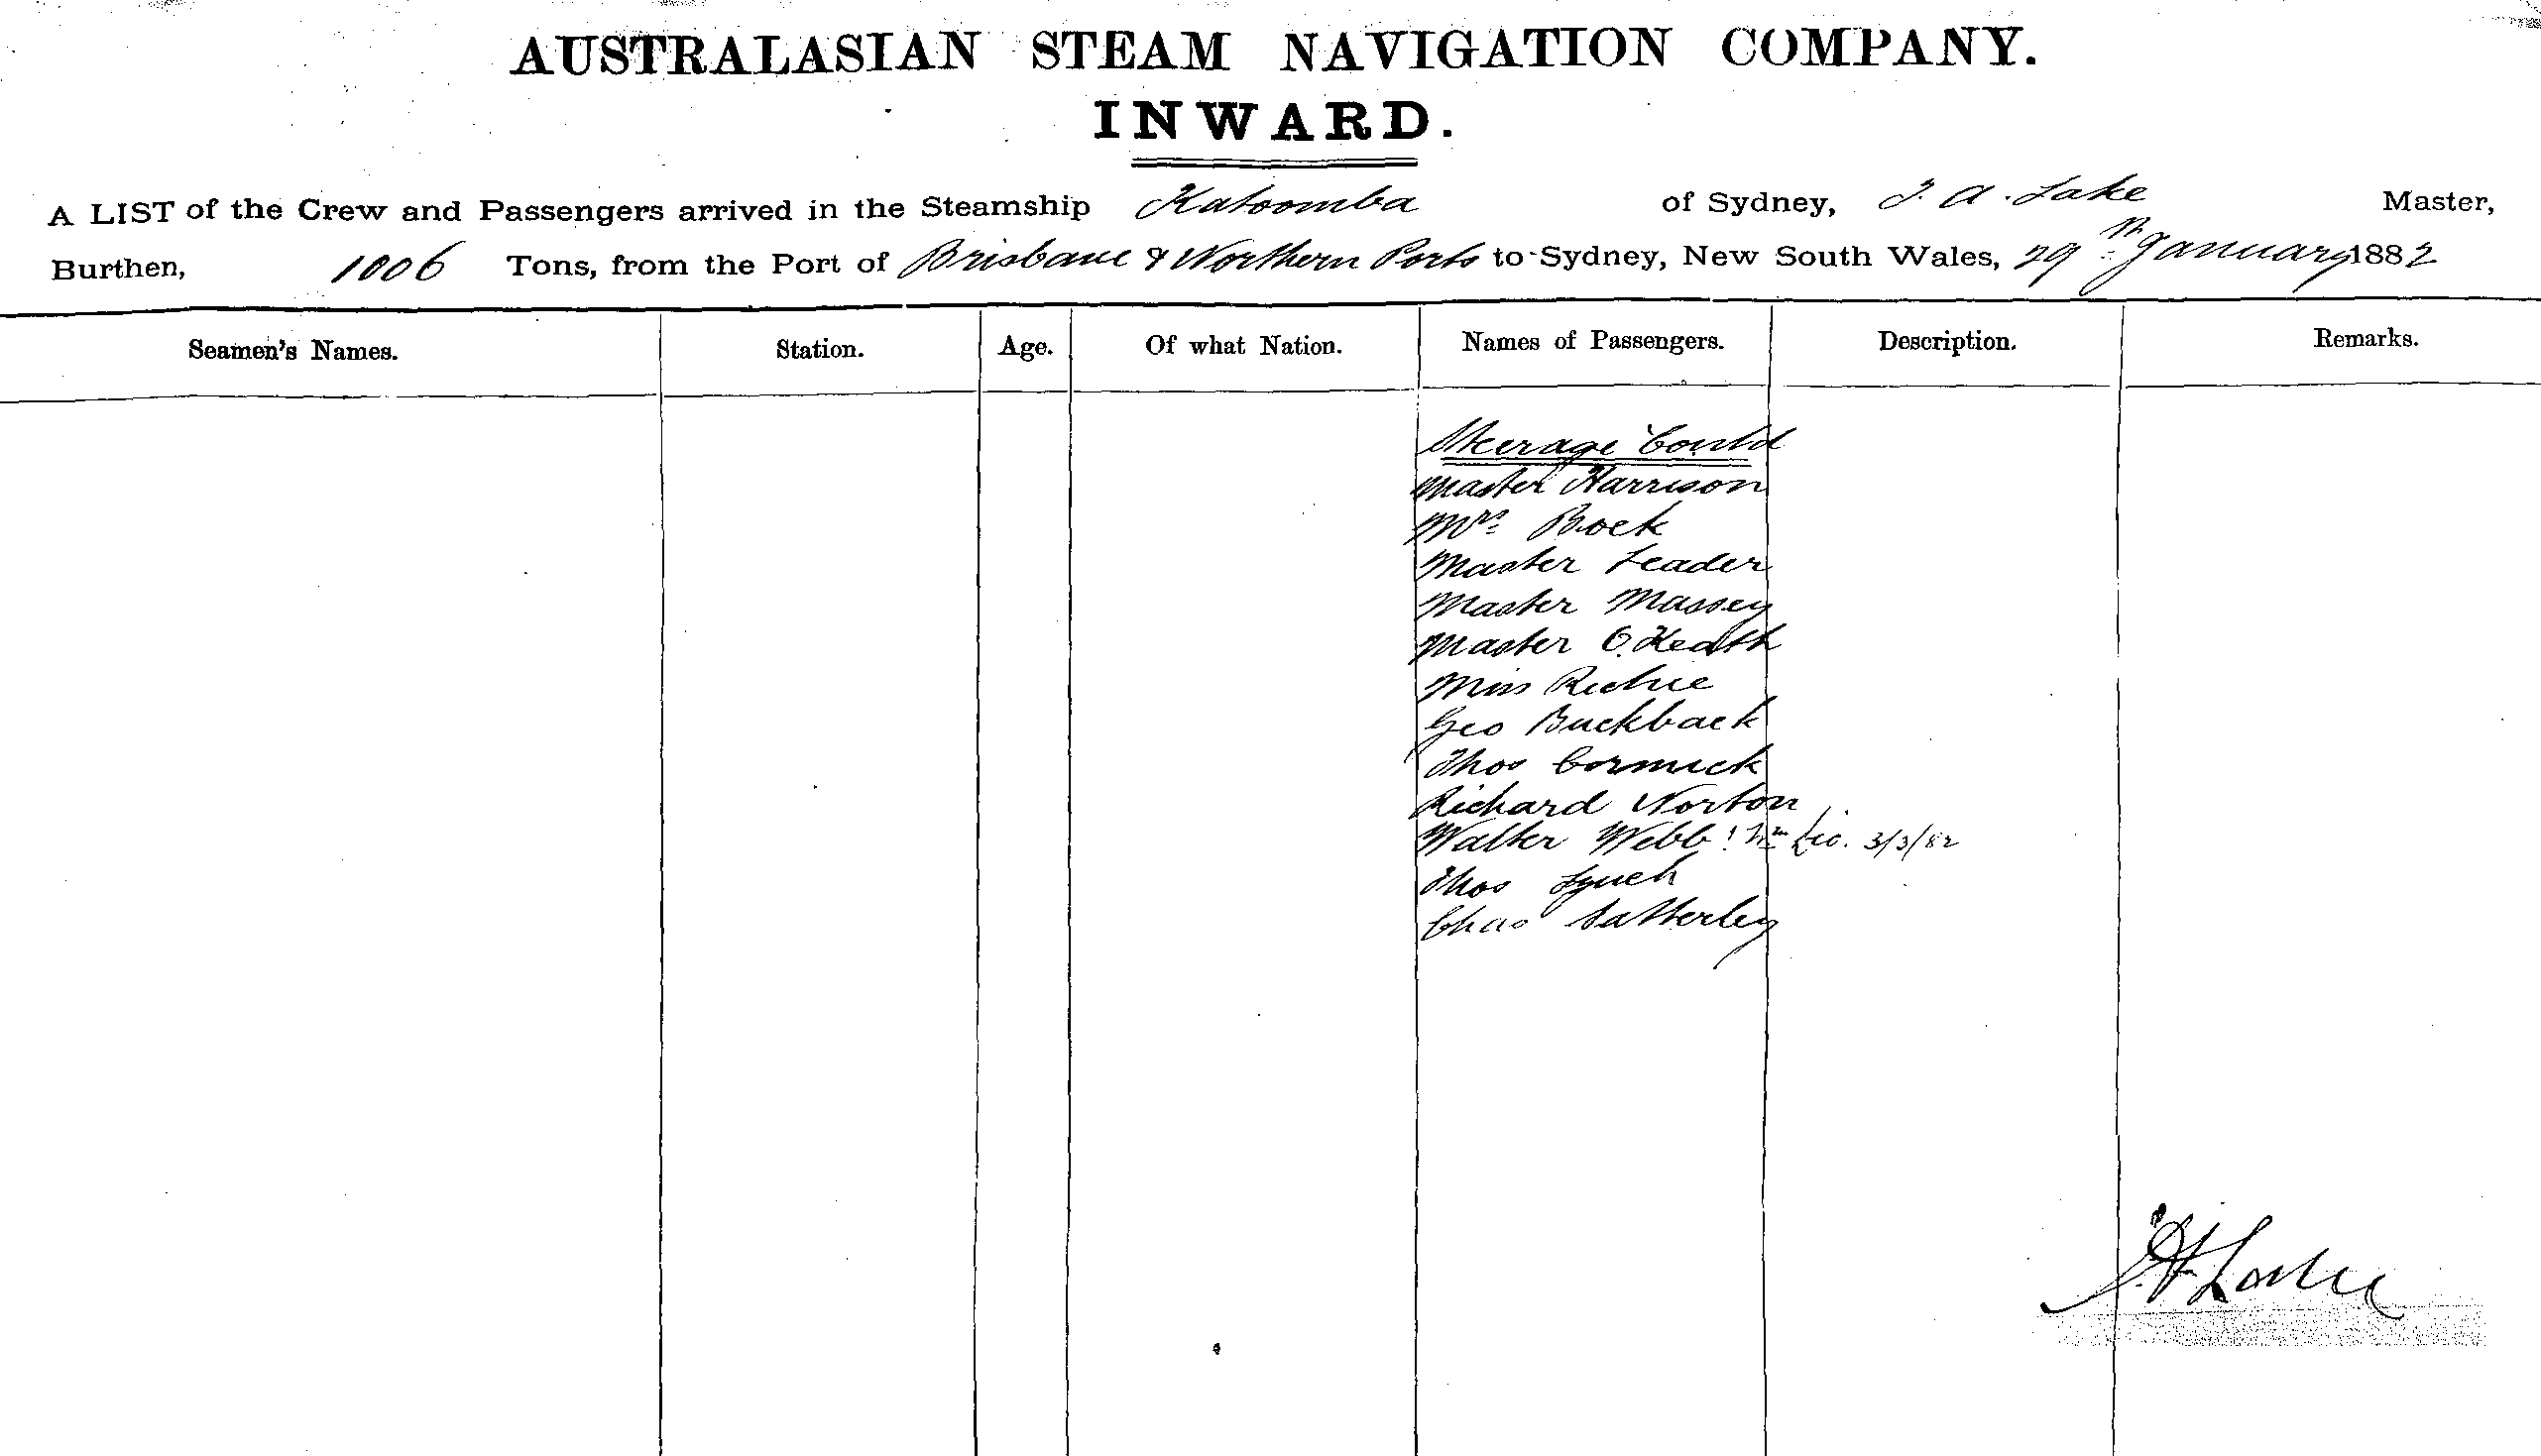 AUSTRALASIAN STEAM NAVIGATION COMPANY.
INWARD.
A LIST of the Crew and Passengers arrived in the Steamship Katoomba of Sydney, J. A. Lake Master,
Burthen, 1006 Tons, from the Port of Brisbane & Northern Ports to Sydney, New South Wales, 29th January 1882
Seamen's Names. Station. Age. Of what Nation. Names of Passengers. Description. Remarks.
Steerage Contd
Master Harrison
Mrs Bock
Master Leader
Master Massey
Master O. Heath
Miss Richie
Geo Buckback
Thos Cormick
Richard Norton
Walter Webb 3/3/82
Thos Lynch
Chas Satterley